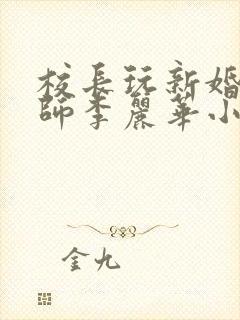 校長玩新婚
師李麗華小
金九